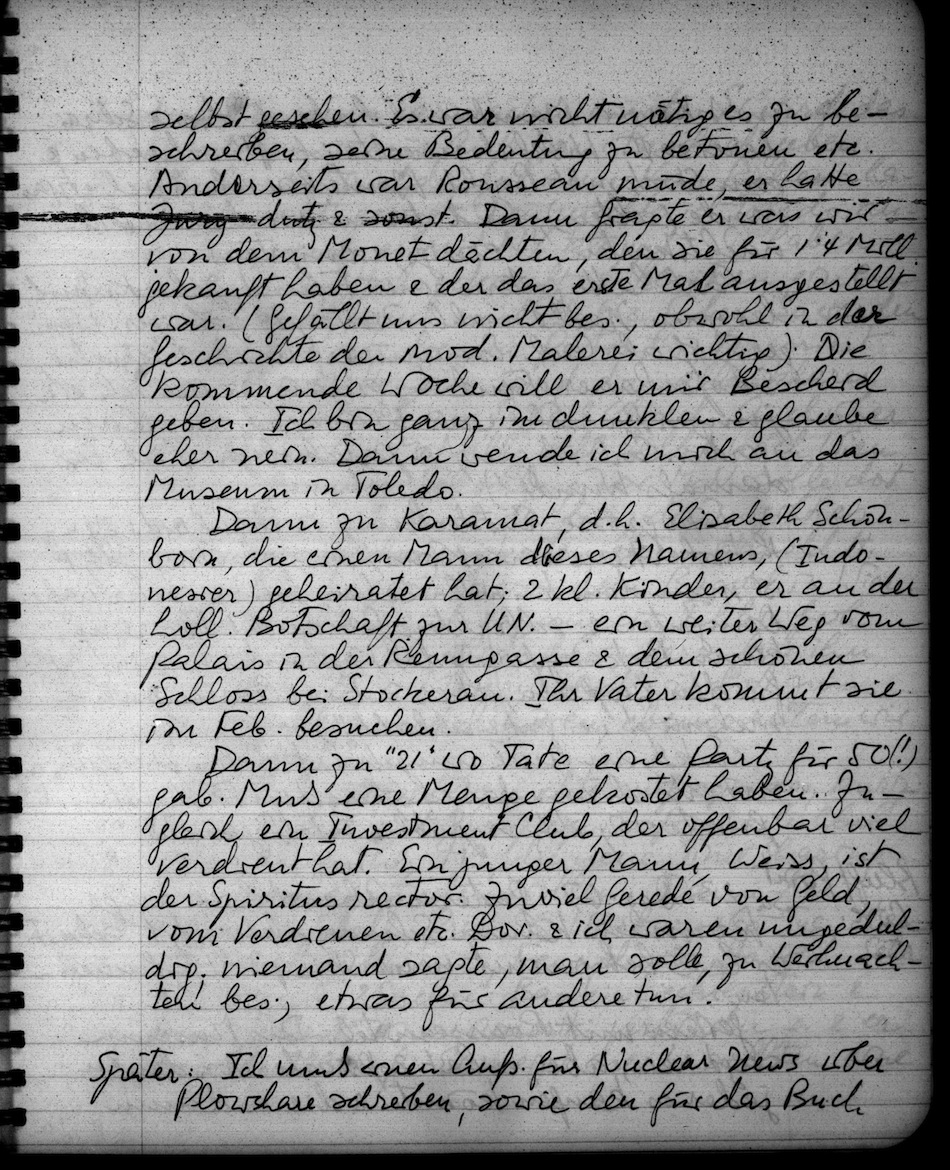 selbst gesehen. Es war nicht nötig es zu be-
schreiben, seine Bedeutung zu betonen etc.
Anderseits war Rousseau müde, er hatte
Jury duty & sonst. Dann fragte er was wir
von dem Monet dächten, den sie für 1·4 Mill.
gekauft haben & der das erste Mal ausgestellt
war. (Gefällt uns nicht bes., obwohl in der
Geschichte der mod. Malerei wichtig). Die
kommende Woche will er mir Bescheid
geben. Ich bin ganz im dunklen & glaube
eher nein. Dann wende ich mich an das
Museum in Toledo.
Dann zu Karamat, d.h. Elisabeth Schön-
born, die einen Mann dieses Namens, (Indo-
nesier) geheiratet hat; 2 kl. Kinder, er an der
holl. Botschaft zur UN. – ein weiter Weg vom
Palais in der Renngasse & dem schönen
Schloss bei Stockerau. Ihr Vater kommt sie
im Feb. besuchen.
Dann zu "21" wo Tate eine Party für 50(!)
gab. Muß eine Menge gekostet haben. Zu-
gleich ein Investment Club, der offenbar viel
verdient hat. Ein junger Mann, Weiss, ist
der Spiritus rector. Zuviel Gerede von Geld,
vom Verdienen etc. Dor. & ich waren ungedul-
dig. niemand sagte, man solle, zu Weihnach-
ten bes., etwas für andere tun.
Später: Ich muß einen Aufs. für Nuclear News über
Plowshare schreiben, sowie den für das Buch